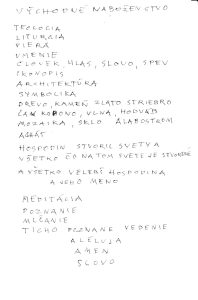 VÝCHODNÉ NÁBOŽENSTVO
TEOLOGIA
LITURGIA
VIERA
UMENIE
ČLOVEK HLAS, SLOVO, SPEV
IKONOPIS
ARCHITEKTÚRA
SYMBOLIKA
DREVO, KAMEŇ ZLATO STRIEBRO
VLNA, HODVÁB
MOZAIKA, SKLO ALABOSTROM
ACHÁT
HOSPODIN STVORIL SVETVA
VŠETKO ČO NA TOM SVETE JE STVORENÉ
A VŠETKO VELEBÍ HOSPODINA
A JEHO MENO
MEDITACIA
POZNANIE
MLČANIE
TICHO POZNANE VEDENIE
ALELUJA
AMEN
SLOVO